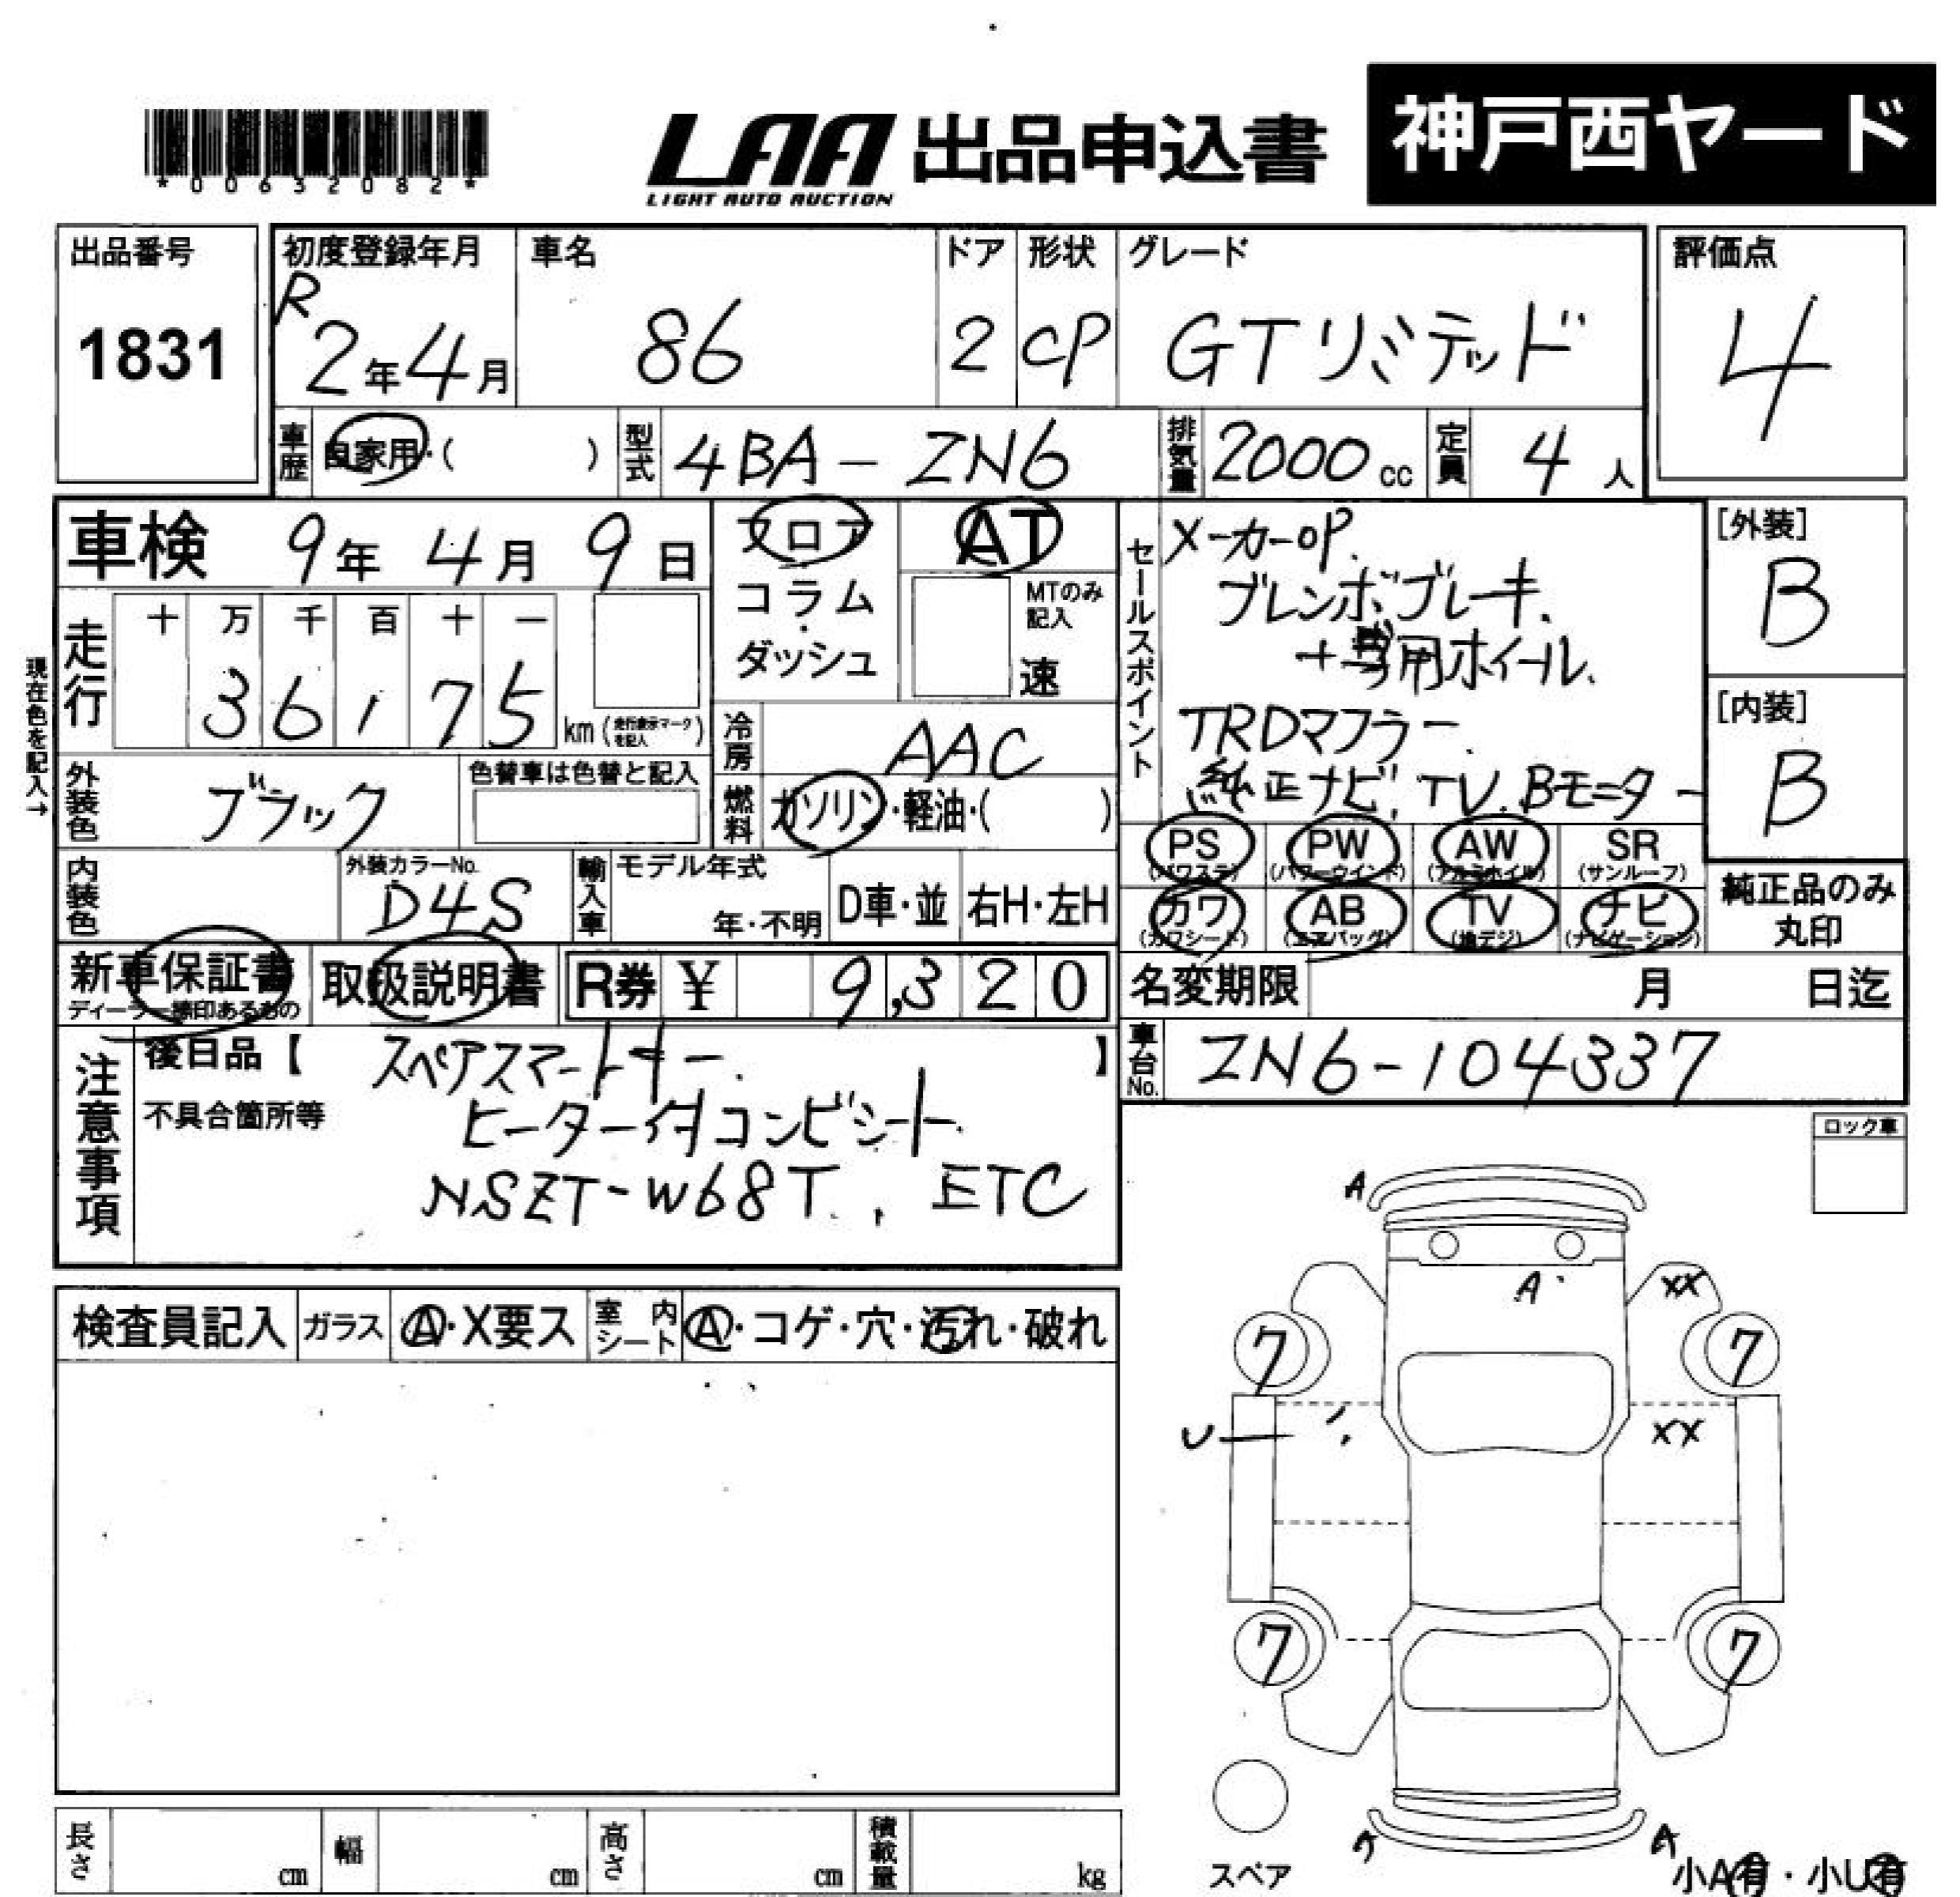 神戸西ヤード
LAA 出品申込書
LIGHT AUTO AUCTION
*00632082*
出品番号
1831
初度登録年月
R2年4月
車名
86
ドア
2
形状
CP
グレード
GTリミテッド
評価点
4
車歴
自家用・( )
型式
4BA-ZN6
排気量
2000cc
定員
4人
車検 9年4月9日
フロア
コラム
・
ダッシュ
AT
MTのみ
記入
速
現在色を記入→
走行
十 万 千 百 十 一
3 6 1 7 5
km(走行表示マークを記入)
冷房
AAC
燃料
ガソリン・軽油・( )
外装色
ブラック
色替車は色替と記入
内装色
外装カラーNo.
D4S
輸入車
モデル年式
年・不明
D車・並
右H・左H
セールスポイント
メーカーOP.
ブレンボブレーキ.
+専用ホイール.
TRDマフラー.
純正ナビ, TV. Bモニター
[外装]
B
[内装]
B
PS
(パワステ)
PW
(パワーウインド)
AW
(アルミホイル)
SR
(サンルーフ)
カワ
(カワシート)
AB
(エアバッグ)
TV
(地デジ)
ナビ
(ナビゲーション)
純正品のみ
丸印
新車保証書
ディーラー捺印あるもの
取扱説明書
R券 ¥ 9,320
名変期限 月 日迄
車台No.
ZN6-104337
注意事項
後日品【 スペアスマートキー. 】
不具合箇所等
ヒーター付コンビシート.
NSZT-W68T., ETC
ロック車
検査員記入
ガラス
A・X要ス
室内シート
A・コゲ・穴・汚れ・破れ
A
A
XX
7
7
U
XX
7
7
A
スペア
小A有・小U有
長さ cm
幅 cm
高さ cm
積載量 kg